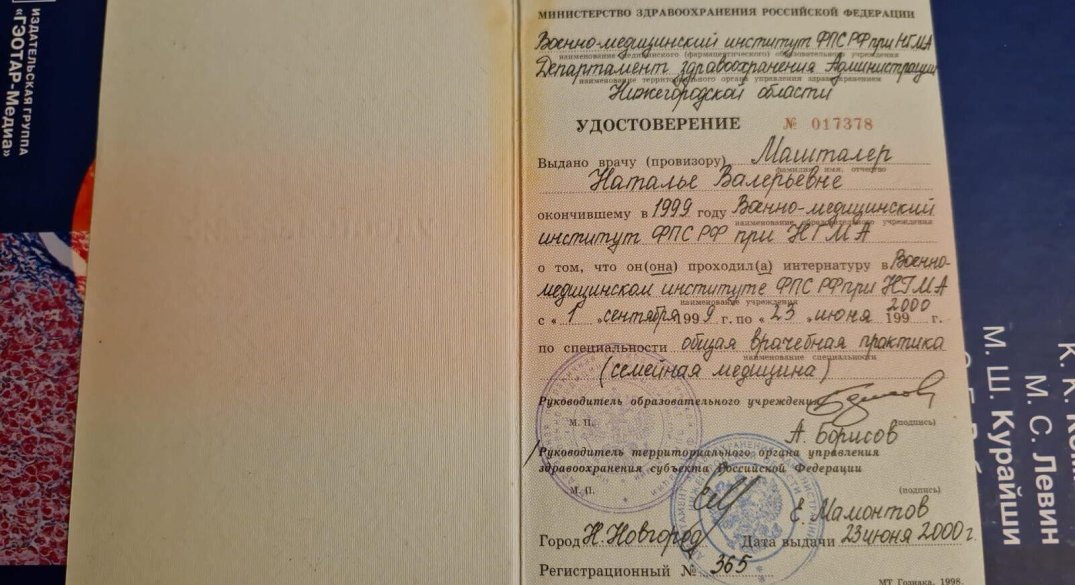 ИЗДАТЕЛЬСКАЯ ГРУППА
«ГЭОТАР-Медиа»
МИНИСТЕРСТВО ЗДРАВООХРАНЕНИЯ РОССИЙСКОЙ ФЕДЕРАЦИИ
Военно-медицинский институт ФПС РФ при НГМА
наименование медицинского (фармацевтического) образовательного учреждения
Департамент здравоохранения Администрации
наименование территориального органа управления здравоохранением
Нижегородской области
УДОСТОВЕРЕНИЕ № 017378
Выдано врачу (провизору) Машталер
фамилия, имя, отчество
Наталье Валерьевне
окончившему в 1999 году Военно-медицинский
наименование образовательного учреждения
институт ФПС РФ при НГМА
о том, что он(она) проходил(а) интернатуру в Военно-
медицинском институте ФПС РФ при НГМА
наименование учреждения
с « 1 » сентября 1999 г. по « 23 » июня 199 2000 г.
по специальности общая врачебная практика
наименование специальности
(семейная медицина)
Руководитель образовательного учреждения
М. П.
(подпись)
А. Борисов
Руководитель территориального органа управления
здравоохранения субъекта Российской Федерации
М. П.
(подпись)
Е. Мамонтов
Город Н. Новгород Дата выдачи 23 июня 2000 г.
Регистрационный № 365
МТ Гознака, 1998.
М. С. Левин
М. Ш. Курайши